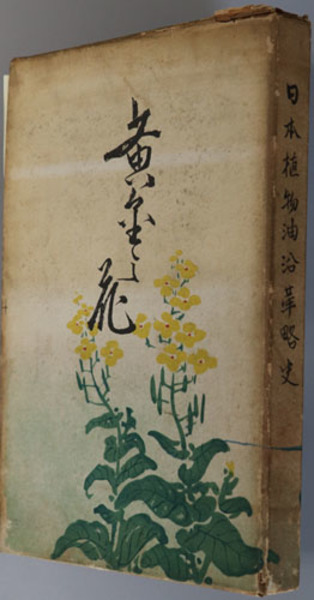 黄金之花
日本植物油沿革略史